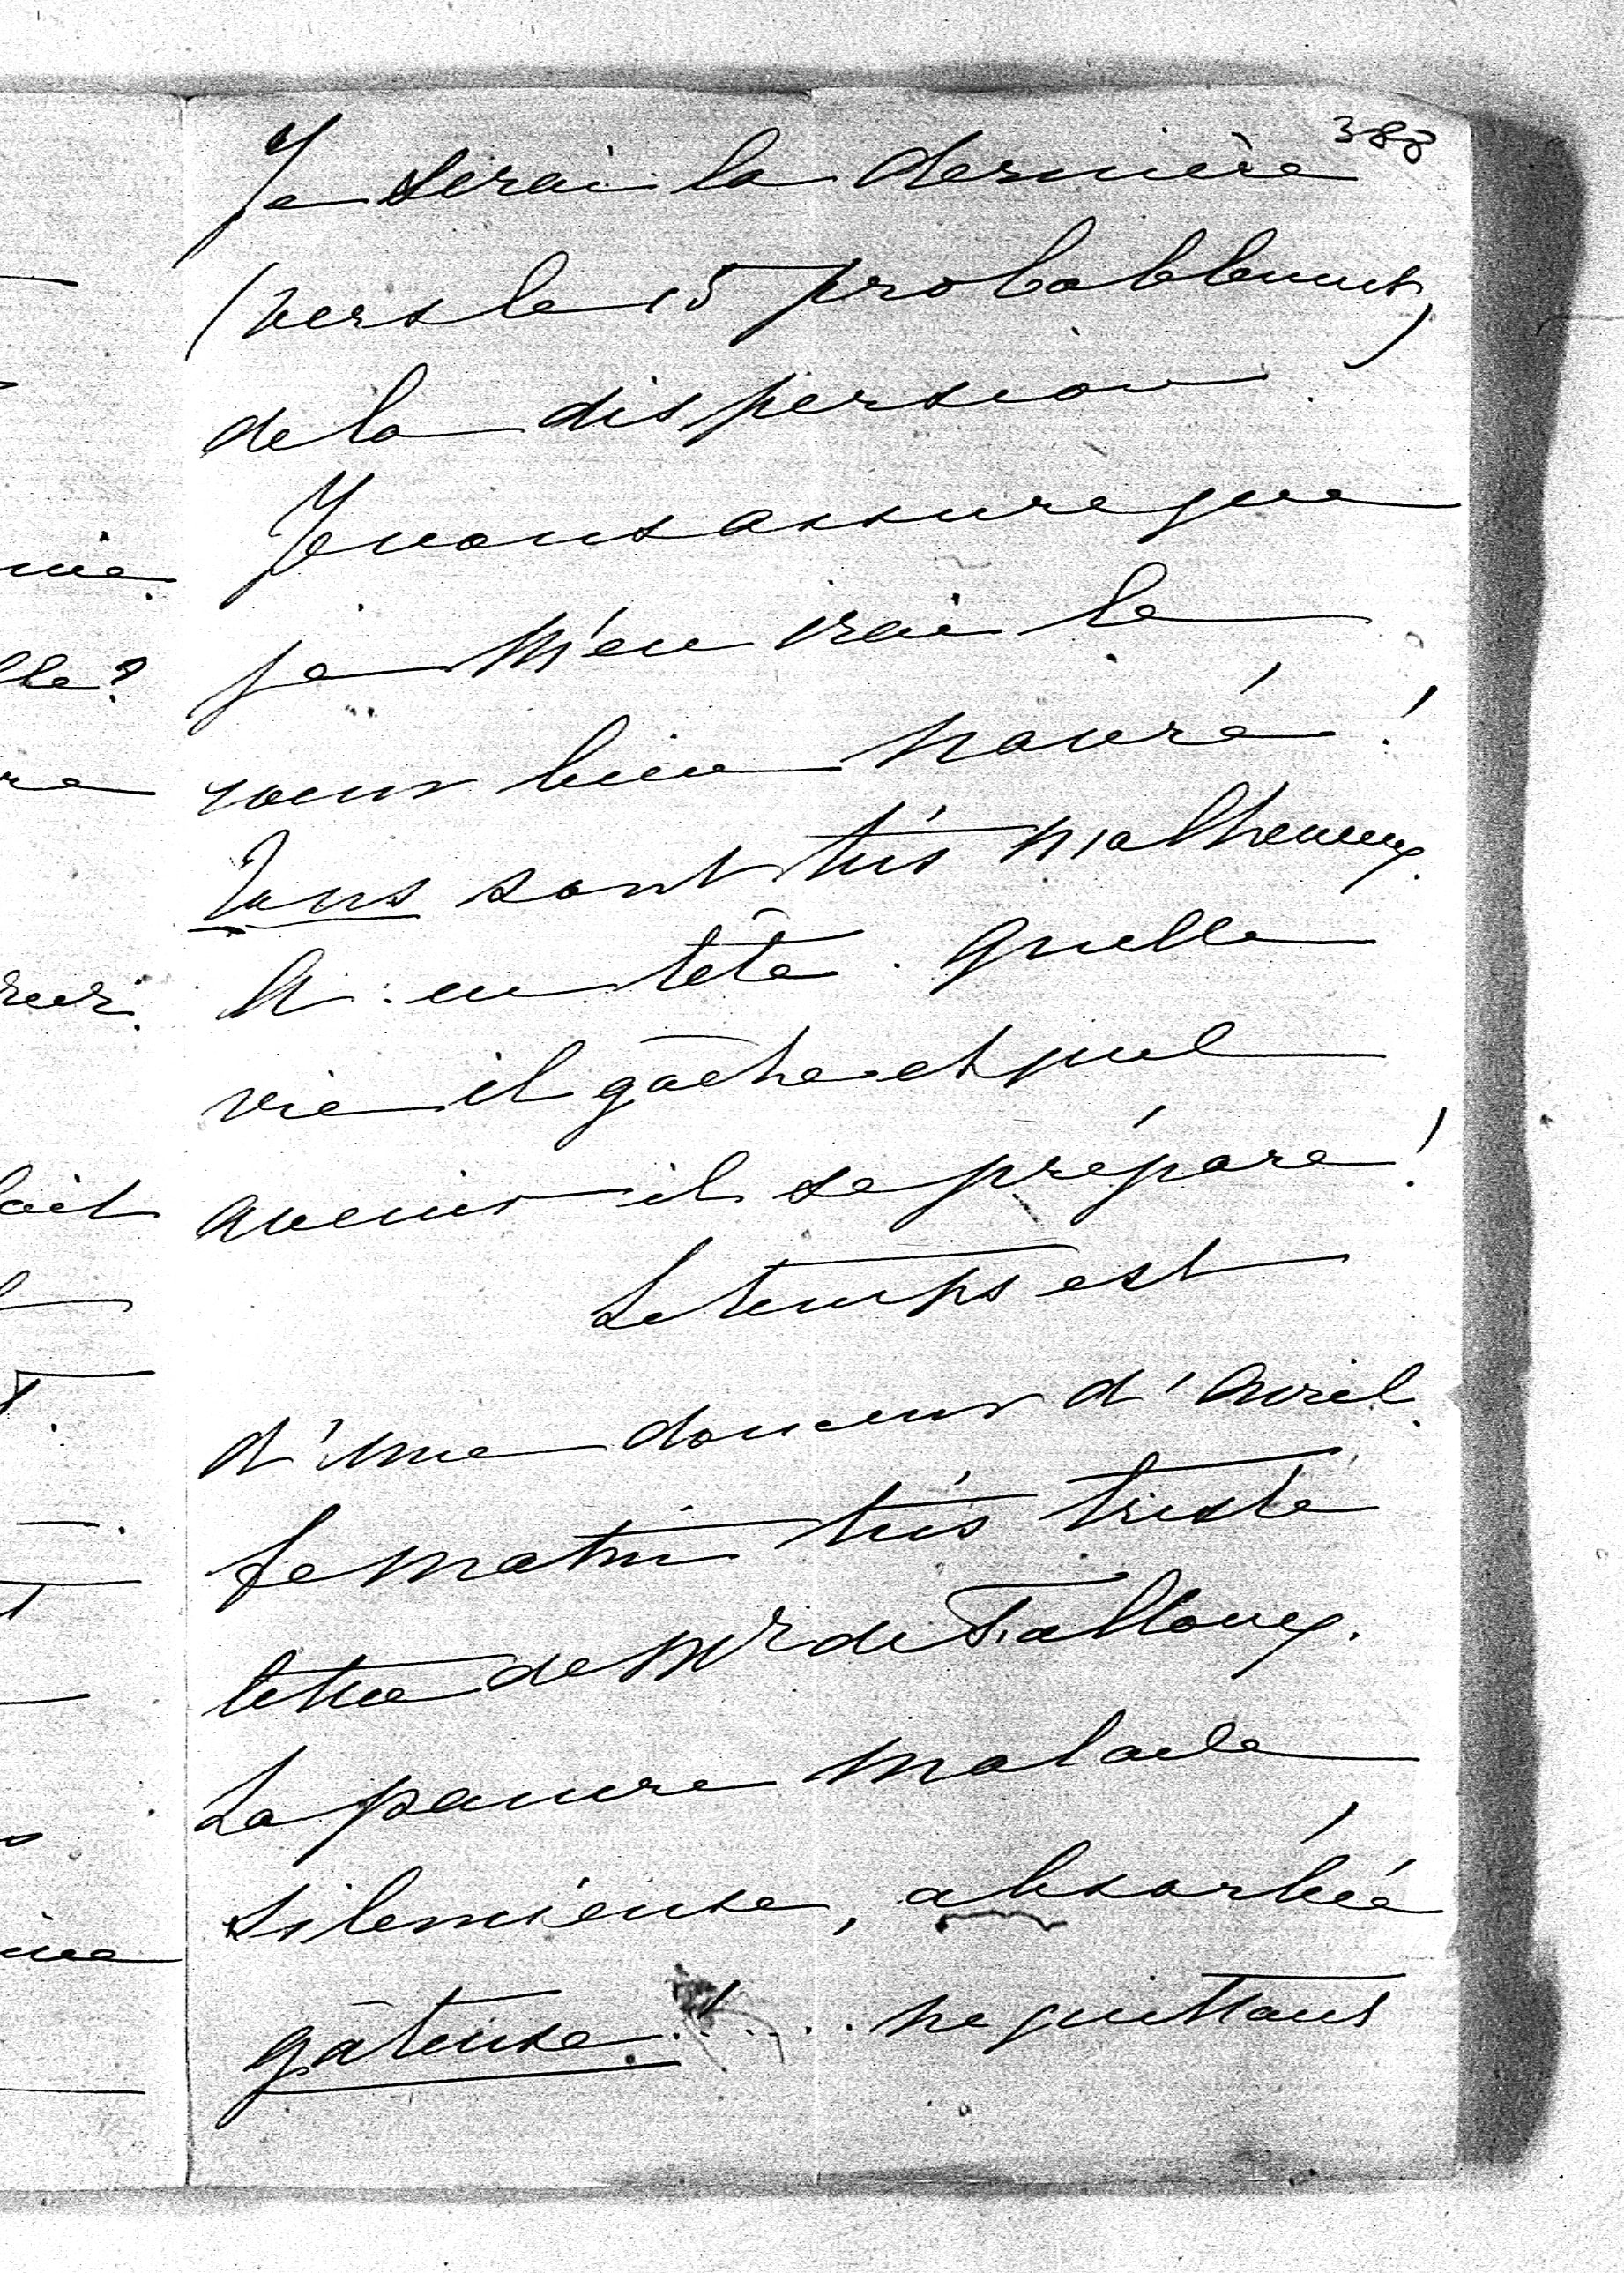 388
Je serai la dernière
(vers le 15 probablement)
de la dispersion.
Je vous assure que
je m'en irai le
coeur bien navré !
Tous sont très malheureux.
A : en tête. Quelle
vie il gâche et quel
avenir il se prépare !
Le temps est
d'une douceur d'avril.
Ce matin très triste
lettre de Mr de Falloux.
La pauvre malade
silencieuse, absorbée
gâteuse..... ne quittant